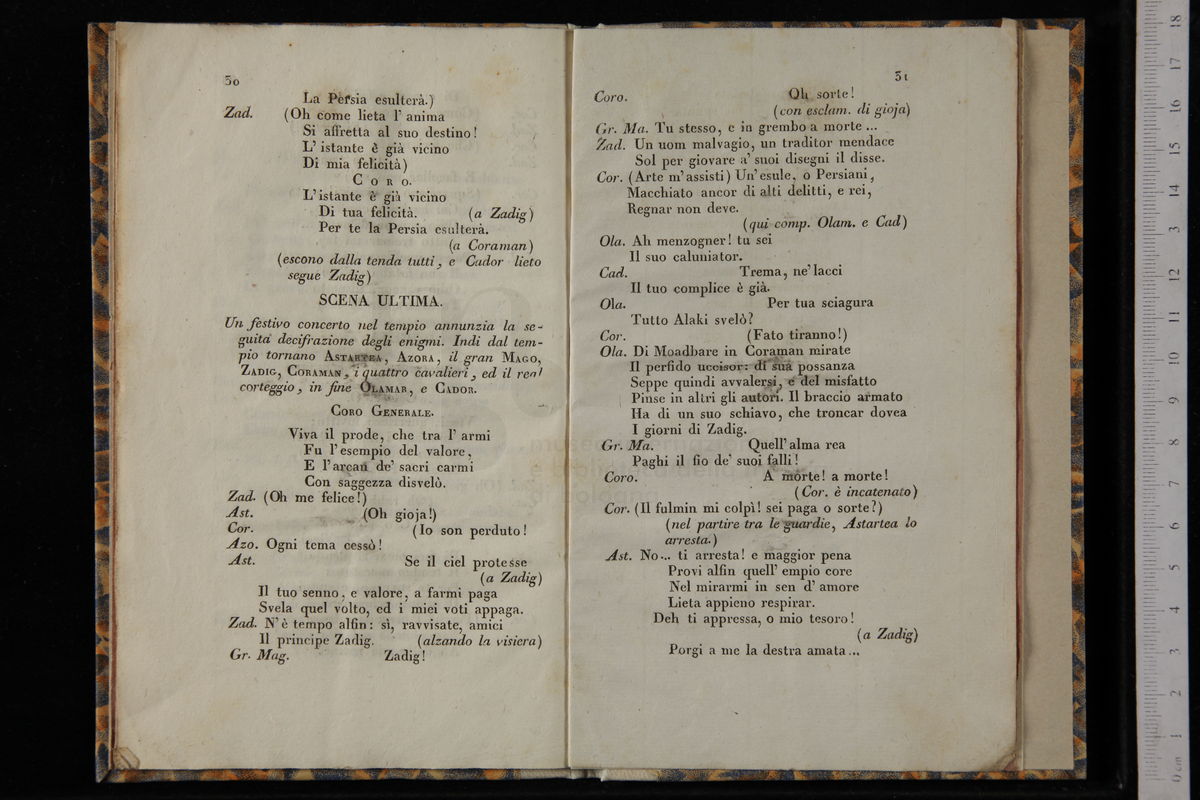 30
La Persia esulterà.)
Zad. (Oh come lieta l' anima
Si affretta al suo destino!
L' istante è già vicino
Di mia felicità)
CORO.
L'istante è già vicino
Di tua felicità. (a Zadig)
Per te la Persia esulterà.
(a Coraman)
(escono dalla tenda tutti, e Cador lieto
segue Zadig)
SCENA ULTIMA.
Un festivo concerto nel tempio annunzia la se-
guita decifrazione degli enigmi. Indi dal tem-
pio tornano ASTARTEA, AZORA, il gran MAGO,
ZADIG, CORAMAN, i quattro cavalieri, ed il real
corteggio, in fine OLAMAR, e CADOR.
CORO GENERALE.
Viva il prode, che tra l' armi
Fu l'esempio del valore,
E l'arcan de' sacri carmi
Con saggezza disvelò.
Zad. (Oh me felice!)
Ast. (Oh gioja!)
Cor. (Io son perduto!
Azo. Ogni tema cessò!
Ast. Se il ciel protesse
(a Zadig)
Il tuo senno, e valore, a farmi paga
Svela quel volto, ed i miei voti appaga.
Zad. N'è tempo alfin: sì, ravvisate, amici
Il principe Zadig. (alzando la visiera)
Gr. Mag. Zadig!
31
Coro. Oh sorte!
(con esclam. di gioja)
Gr. Ma. Tu stesso, e in grembo a morte ...
Zad. Un uom malvagio, un traditor mendace
Sol per giovare a' suoi disegni il disse.
Cor. (Arte m'assisti) Un'esule, o Persiani,
Macchiato ancor di alti delitti, e rei,
Regnar non deve.
(qui comp. Olam. e Cad)
Ola. Ah menzogner! tu sei
Il suo caluniator.
Cad. Trema, ne' lacci
Il tuo complice è già.
Ola. Per tua sciagura
Tutto Alaki svelò?
Cor. (Fato tiranno!)
Ola. Di Moadbare in Coraman mirate
Il perfido uccisor: di sua possanza
Seppe quindi avvalersi, e del misfatto
Pinse in altri gli autori. Il braccio armato
Ha di un suo schiavo, che troncar dovea
I giorni di Zadig.
Gr. Ma. Quell' alma rea
Paghi il fio de' suoi falli!
Coro. A morte! a morte!
(Cor. è incatenato)
Cor. (Il fulmin mi colpì! sei paga o sorte?)
(nel partire tra le guardie, Astartea lo
arresta.)
Ast. No... ti arresta! e maggior pena
Provi alfin quell' empio core
Nel mirarmi in sen d' amore
Lieta appieno respirar.
Deh ti appressa, o mio tesoro!
(a Zadig)
Porgi a me la destra amata...
0 cm 1 2 3 4 5 6 7 8 9 10 11 12 13 14 15 16 17 18